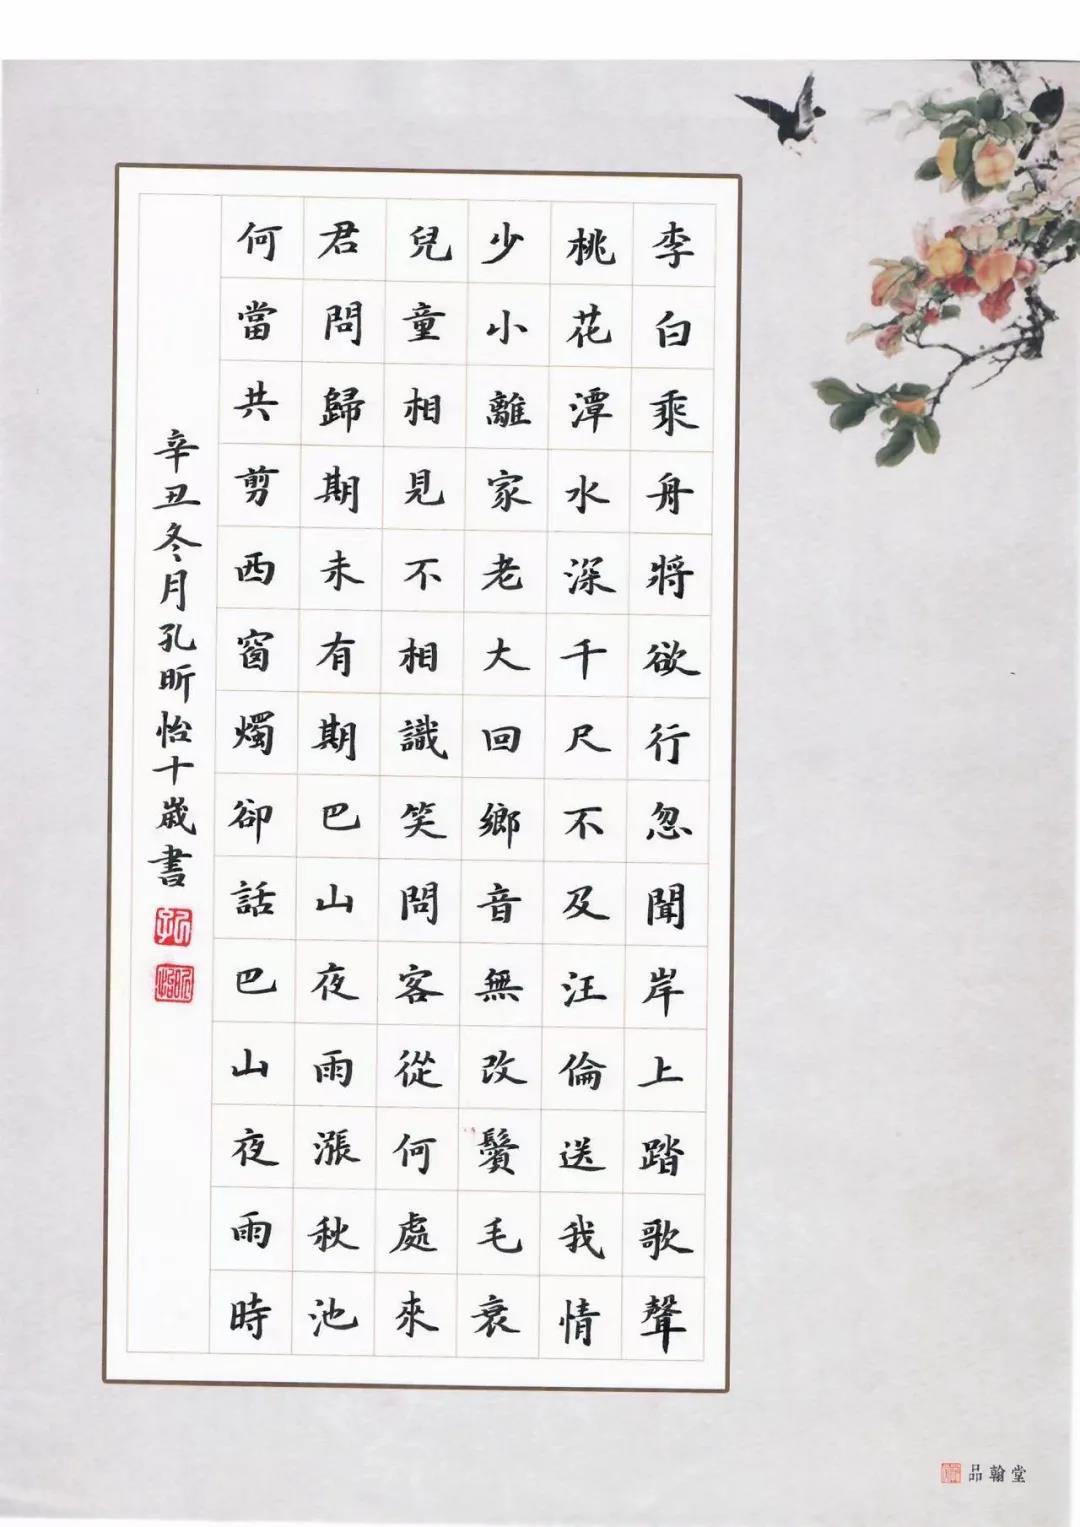 李白乘舟將欲行忽聞岸上踏歌聲
桃花潭水深千尺不及汪倫送我情
少小離家老大回鄉音無改鬢毛衰
兒童相見不相識笑問客從何處來
君問歸期未有期巴山夜雨漲秋池
何當共剪西窗燭卻話巴山夜雨時
辛丑冬月孔昕怡十歲書
孔
昕怡
品翰堂